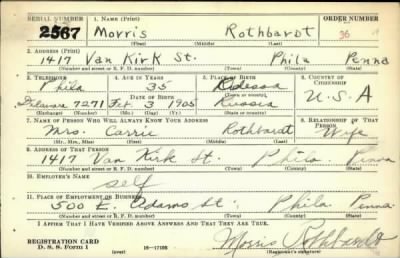 SERIAL NUMBER 1. NAME (Print) ORDER NUMBER
2567 Morris Rothbardt 36
(First) (Middle) (Last)
2. ADDRESS (Print)
1417 Van Kirk St. Phila Penna
(Number and street or R. F. D. number) (Town) (County) (State)
3. TELEPHONE 4. AGE IN YEARS 5. PLACE OF BIRTH 6. COUNTRY OF CITIZENSHIP
Phila 35 Odessa
DATE OF BIRTH
Delaware 7271 Feb. 3 1905 Russia U.S.A
(Exchange) (Number) (Mo.) (Day) (Yr.) (State or country)
7. NAME OF PERSON WHO WILL ALWAYS KNOW YOUR ADDRESS 8. RELATIONSHIP OF THAT PERSON
Mrs. Carrie Rothbardt Wife
(Mr., Mrs., Miss) (First) (Middle) (Last)
9. ADDRESS OF THAT PERSON
1417 Van Kirk St. Phila. Penna
(Number and street or R. F. D. number) (Town) (County) (State)
10. EMPLOYER'S NAME
self
11. PLACE OF EMPLOYMENT OR BUSINESS
500 E. Adams St Phila. Penna
(Number and street or R. F. D. number) (Town) (County) (State)
I AFFIRM THAT I HAVE VERIFIED ABOVE ANSWERS AND THAT THEY ARE TRUE.
REGISTRATION CARD
D. S. S. Form 1 (over) 16—17105 Morris Rothbardt
(Registrant's signature)